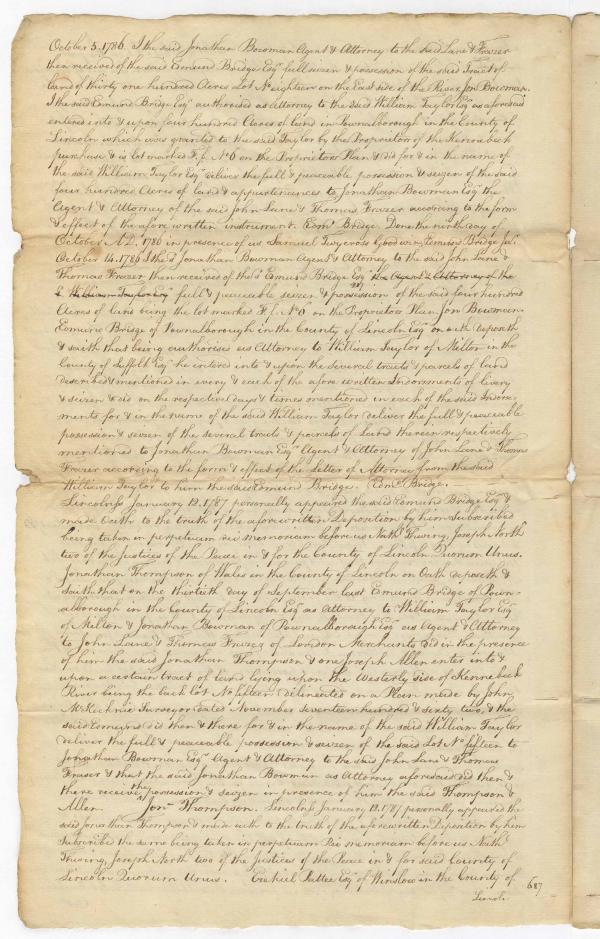 October 5. 1786. I the said Jonathan Bowman Agent & Attorney to the said Lane & Frazer
then received of the said Edmund Bridge Esqr full seizen & possession of the said Tract of
Land of thirty one hundred Acres Lot No eighteen on the East side of the River Jon Bowman.
I the said Edmund Bridge Esqr authorised as Attorney to the said William Taylor Esqr as aforesaid
entered into & upon four hundred Acres of land in Pownalborough in the County of
Lincoln which was granted to the said Taylor by the Proprietors of the Kennebeck
purchase & is lot marked F. f. No 0 on the Proprietors Plan & did for & in the name of
the said William Taylor Esqr deliver the full & peaceable possession & seizen of the said
four hundred Acres of land & appurtenances to Jonathan Bowman Esqr the
Agent & Attorney of the said John Lane & Thomas Frazer according to the form
& effect of the afore written instrument. Edmd Bridge. Done the ninth day of
October A.D. 1786 in presence of us Samuel Twycross Edmund Bridge Jr.
October 14. 1786 I the sd Jonathan Bowman Agent & Attorney to the said John Lane &
Thomas Frazer then received of the sd Edmund Bridge Esqr the Agent & Attorney of the
sd William Taylor Esqr full & peaceable seizen & possession of the said four hundred
Acres of land being the lot marked F. f. No 0 on the Proprietors Plan. Jon Bowman.
Edmund Bridge of Pownalborough in the County of Lincoln Esqr on oath deposeth
& saith that being authorised as Attorney to William Taylor of Milton in the
County of Suffolk Esqr he entered into & upon the several tracts & parcels of land
described & mentioned in every & each of the afore written Indorsments of livery
& seizen & did on the respective days & times mentioned in each of the said Indors-
ments for & in the name of the said William Taylor deliver the full & peaceable
possession & seizen of the several tracts & parcels of Land therein respectively
mentioned to Jonathan Bowman Esqr Agent & Attorney of John Lane & Thomas
Frazier according to the form & effect of the Letter of Attorney from the said
William Taylor to him the said Edmund Bridge. Edmd Bridge.
Lincolnss January 13. 1787 personally appeared the said Edmund Bridge Esqr &
made Oath to the truth of the aforewritten Deposition by him Subscribed
being taken in perpetuam rei memoriam before us Nathl Thwing, Joseph North
two of the Justices of the Peace in & for the County of Lincoln Quorum Unus.
Jonathan Thompson of Wales in the County of Lincoln on Oath deposeth &
saith that on the thirtieth day of September last Edmund Bridge of Pown-
alborough in the County of Lincoln Esqr as Attorney to William Taylor Esqr
of Milton & Jonathan Bowman of Pownalborough Esqr as Agent & Attorney
to John Lane & Thomas Frazer of London Merchants did in the presence
of him the said Jonathan Thompson & one Joseph Allen enter into &
upon a certain tract of land lying upon the Westerly side of Kennebeck
River being the back lot No fifteen delineated on a Plan made by John
McKechnie Surveyor dated November seventeen hundred & sixty two, & the
said Edmund did then & there for & in the name of the said William Taylor
deliver the full & peaceable possession & seizen of the said Lot No fifteen to
Jonathan Bowman Esqr Agent & Attorney to the said John Lane & Thomas
Fraser & that the said Jonathan Bowman as Attorney aforesaid did then &
there receive the possession & seizen in presence of him the said Thompson &
Allen. Jonn Thompson. Lincolnss January 13. 1787 personally appeared the
said Jonathan Thompson & made oath to the truth of the aforewritten Deposition by him
Subscribed the same being taken in perpetuam Rei memoriam before us Nathl
Thwing, Joseph North two of the Justices of the Peace in & for said County of
Lincoln Quorum Unus. Ezekiel Pattee Esqr of Winslow in the County of
687
Lincoln